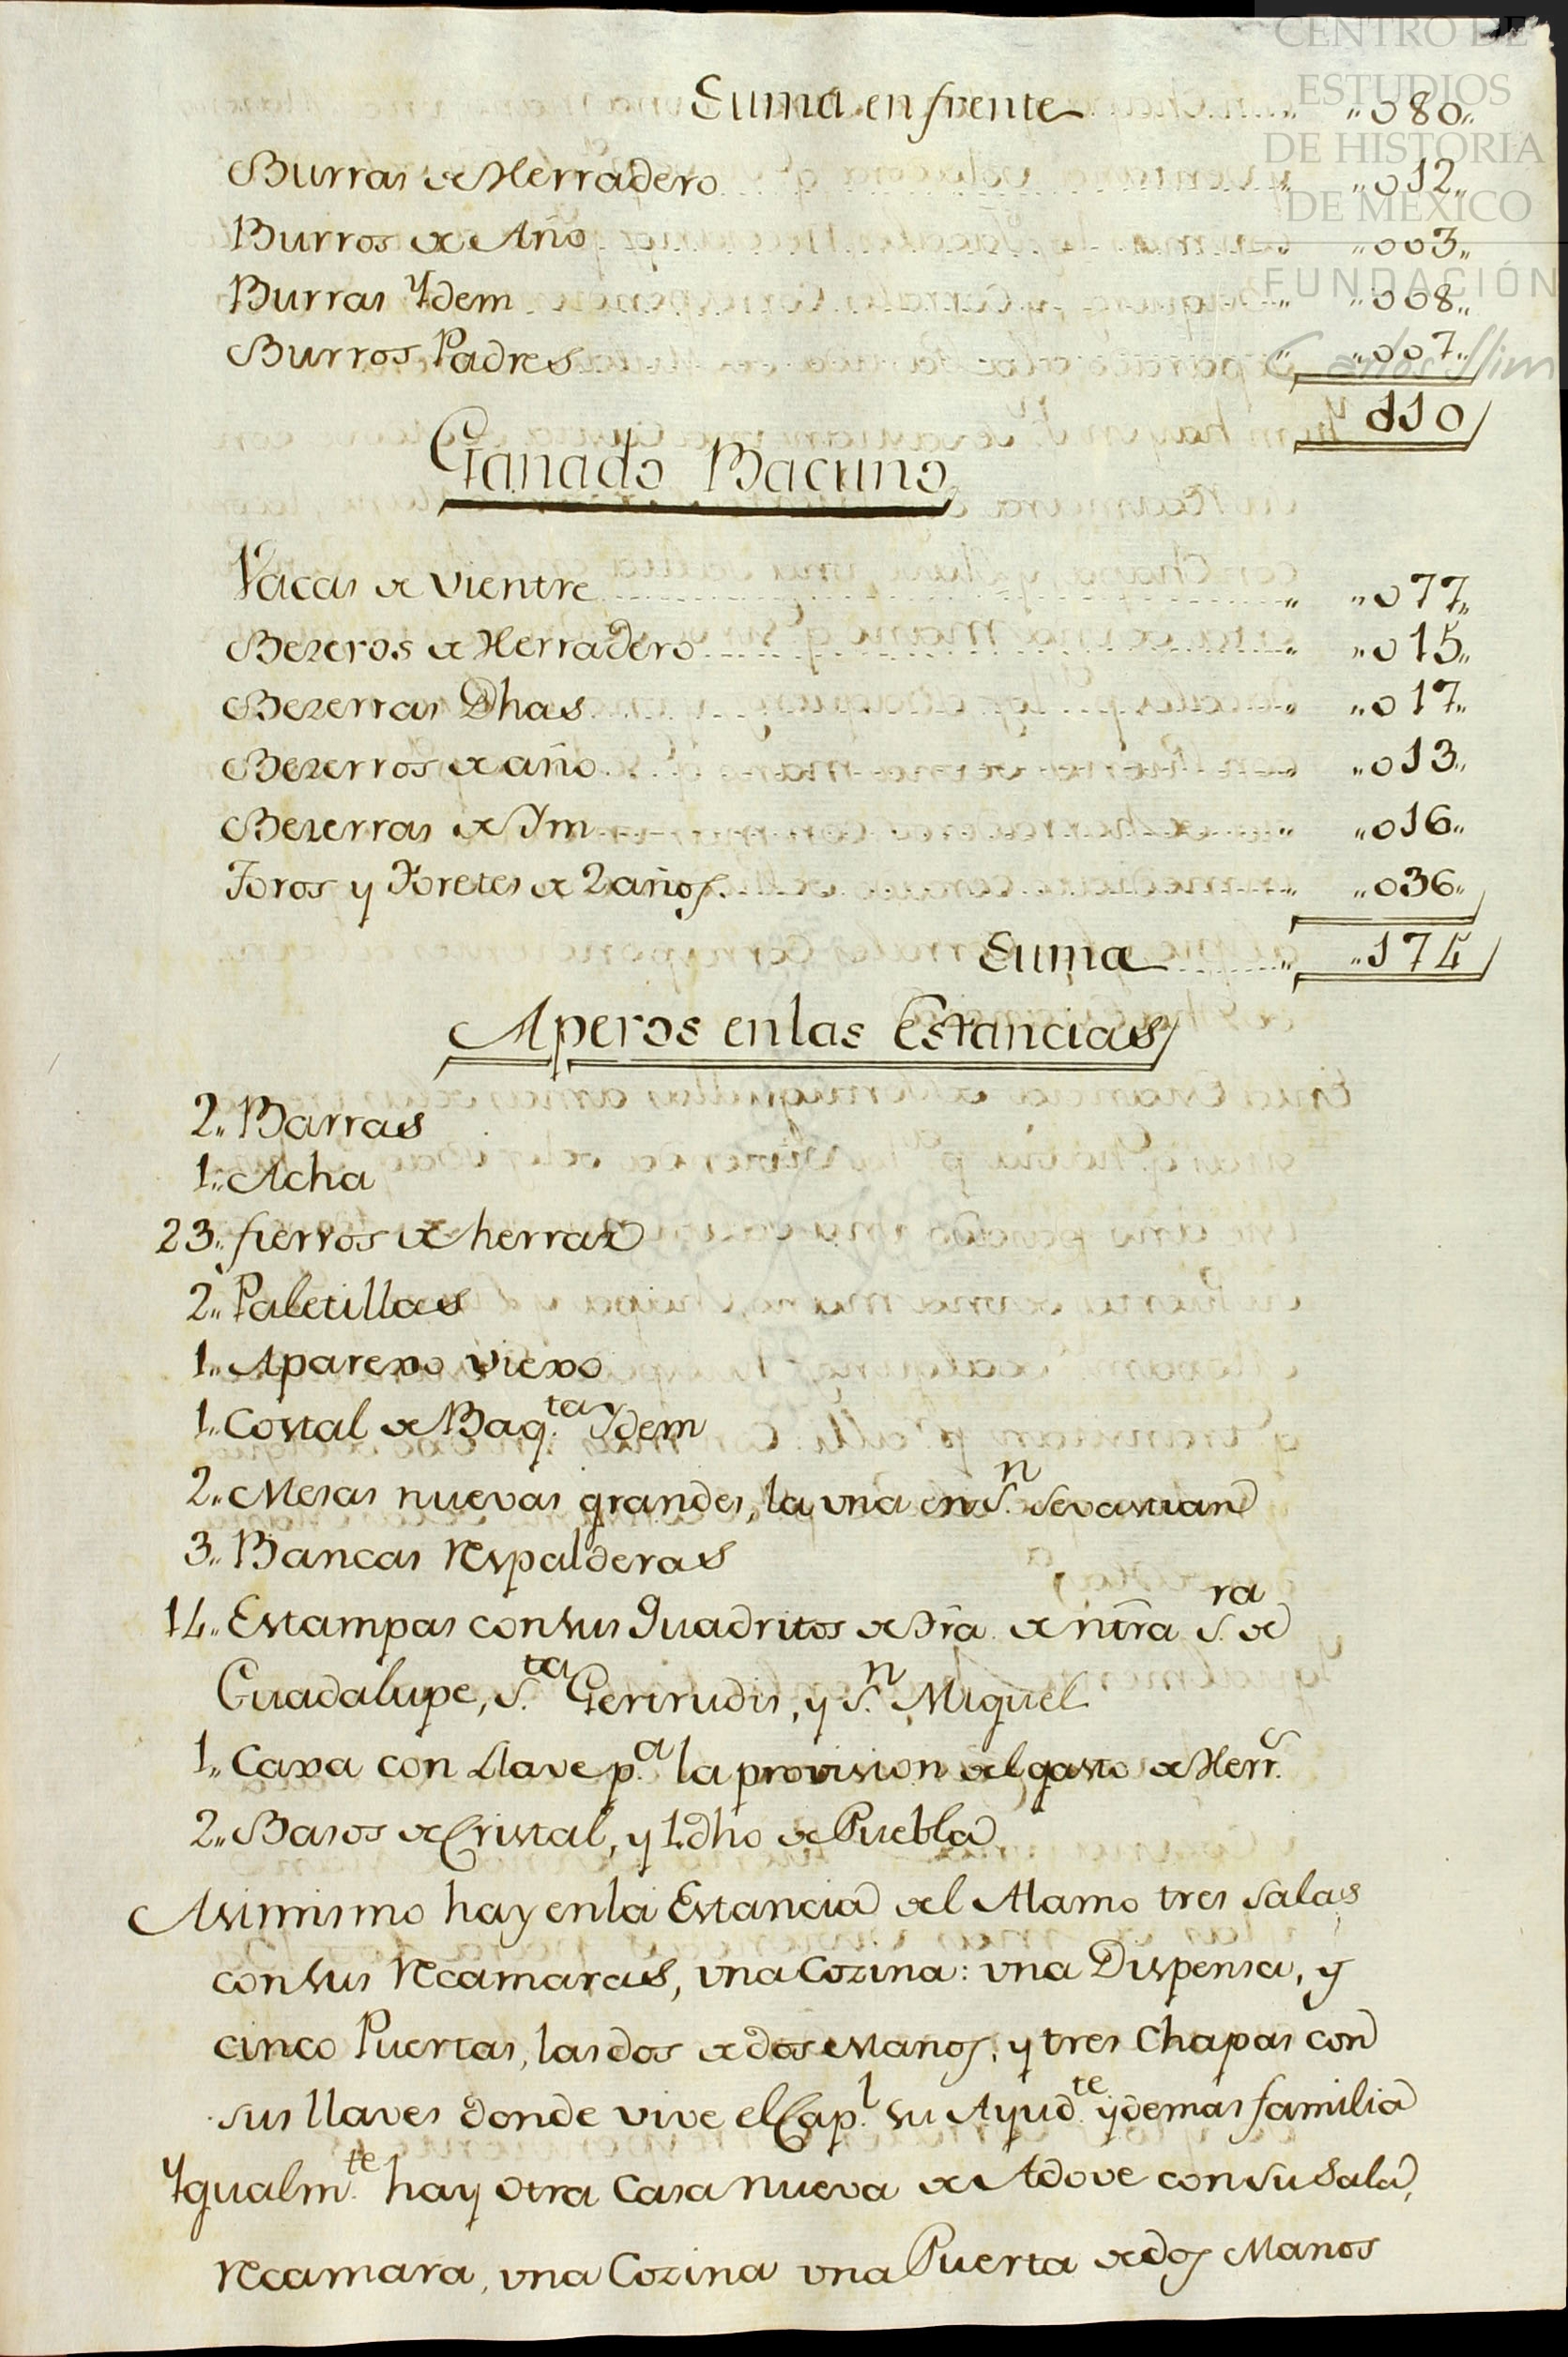 CENTRO DE
ESTUDIOS
DE HISTORIA
DE MEXICO
FUNDACIÓN
Carlos Slim
Suma en frente „ „080„
Burras de Herradero „ „012„
Burros de Año „ „003„
Burras Ydem „ „008„
Burros Padres „ „007„
110
Ganado Bacuno
Vacas de vientre „ „077„
Bezeros de Herradero „ „015„
Bezerras Dhas „ „017„
Bezerros de año „ „013„
Bezerras de Ym „ „016„
Toros y Toretes de 2 años „ „036„
Suma „ „174
Aperos en las Estancias
2„ Barras
1„ Acha
23„ fierros de herrar
2„ Paletillas
1„ Aparexo viexo
1„ Costal de Baq.ta Ydem
2„ Mesas nuevas grandes, la una en S.n Sevastian
3„ Bancas respalderas
14„ Estampas con sus Quadritos de Ntra. de ntra S.ra de
Guadalupe, S.ta Gertrudis, y S.n Miguel
1„ Caxa con Llave p.a la provision del gasto de Herr.
2„ Basos de Cristal, y 1 dho de Puebla
Asimismo hay en la Estancia del Alamo tres Salas
con sus recamaras, una Cozina: una Dispensa, y
cinco Puertas, las dos de dos Manos, y tres Chapas con
sus llaves donde vive el Cap.l su Ayud.te y demas familia
Ygualm.te hay otra Casa nueva de Adove con su Sala,
recamara, una Cozina una Puerta de dos Manos